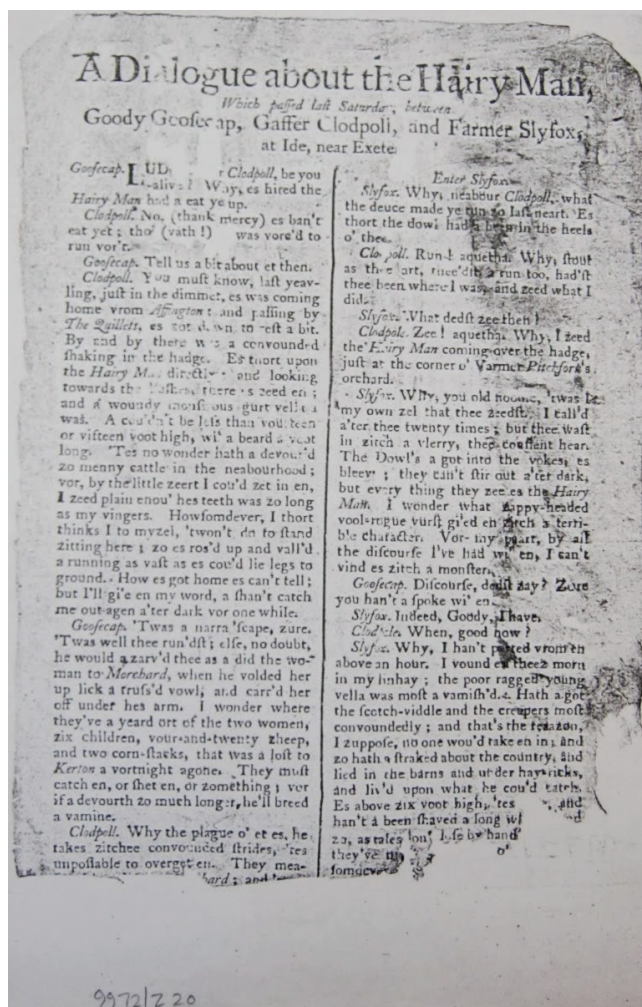 A Dialogue about the Hairy Man,
Which passed last Saturday, between
Goody Goosecap, Gaffer Clodpoll, and Farmer Slyfox,
at Ide, near Exete
Goosecap. LUD Clodpoll, be you
alive? Why, es hired the
Hairy Man had a eat ye up.
Clodpoll. No, (thank mercy) es ban't
eat yet; tho' (vath!) was vorc'd to
run vor't.
Goosecap. Tell us a bit about et then.
Clodpoll. You must know, last yeav-
ling, just in the dimmet, es was coming
home vrom Assington: and passing by
The Quilletts, es zot down to rest a bit.
By and by there was a convounded
shaking in the hadge. Es thort upon
the Hairy M directly and looking
towards the there s zeed en;
and a woundy monstrous gurt vell
was. A cou'dn't be less than vourteen
or vifteen voot high, wi' a beard a voot
long. 'Tes no wonder hath a devour'd
zo menny cattle in the neabourhood;
vor, by the little zeert I cou'd zet in en,
I zeed plain enou' hes teeth was zo long
as my vingers. Howsomdever, I thort
thinks I to myzel, 'twon't do to stand
zitting here; zo es ros'd up and vall'd
a running as vast as es cou'd lie legs to
ground. How es got home es can't tell;
but I'll gi'e en my word, a shan't catch
me out agen a'ter dark vor one while.
Goosecap. 'Twas a narra 'scape, zure.
'Twas well thee run'dst; else, no doubt,
he would a zarv'd thee as a did the wo-
man to Morchard, when he volded her
up lick a truss'd vowl, and carr'd her
off under hes arm. I wonder where
they've a yeard ort of the two women,
zix children, vour-and-twenty zheep,
and two corn-stacks, that was a lost to
Kerton a vortnight agone. They must
catch en, or shet en, or zomething; vor
if a devourth zo much longer, he'll breed
a vamine.
Clodpoll. Why the plague o' et es, he
takes zitchee convounded strides, 'tes
unpossable to overget en. They mea-
hard; and
Enter Slyfox.
Slyfox. Why, neabour Clodpoll, what
the deuce made ye run so last neart. Es
thort the dowl had a been in the heels
o' thee.
Clodpoll. Run! aquetha. Why, stout
as thee art, thee'dst a run too, had'st
thee been where I was, and zeed what I
did.
Slyfox. What dedst zee then?
Clodpole. Zee! aquetha. Why, I zeed
the Hairy Man coming over the hadge,
just at the corner o' Varmer Pitchford's
orchard.
Slyfox. Why, you old noodle, 'twas
my own zel that thee zeedst. I call'd
a'ter thee twenty times; but thee wast
in zitch a vlerry, thee coussent hear.
The Dowl's a got into the vokes, es
bleev; they can't stir out a'ter dark,
but every thing they zee es the Hairy
Man. I wonder what zappy-headed
vool-rogue vurst gi'ed en zitch a terri-
ble character. Vor my part, by all
the discourse I've had wi' en, I can't
vind es zitch a monster.
Goosecap. Discourse, dedst zay? Zure
you han't a spoke wi' en.
Slyfox. Indeed, Goody, I have.
Clodpole. When, good now?
Slyfox. Why, I han't parted vrom en
above an hour. I vound en theez morn
in my linhay; the poor ragged young
vella was most a vamish'd. Hath a got
the scotch-viddle and the creepers most
convoundedly; and that's the reazon,
I zuppose, no one wou'd take en in; and
zo hath a straked about the country, and
lied in the barns and under hayricks,
and liv'd upon what he cou'd catch.
Es above zix voot high, 'tes and
han't a been shaved a long
zo, as tales
they've
somdever
9972/Z 20